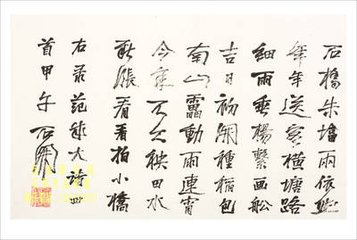 石橋朱塔兩依然
年年送客橫塘路
細雨垂楊繫画船
吉日初開種稻包
南山雷動雨連宵
今年不欠秧田水
新漲看看拍小橋
右录范成大詩四
首甲午石開